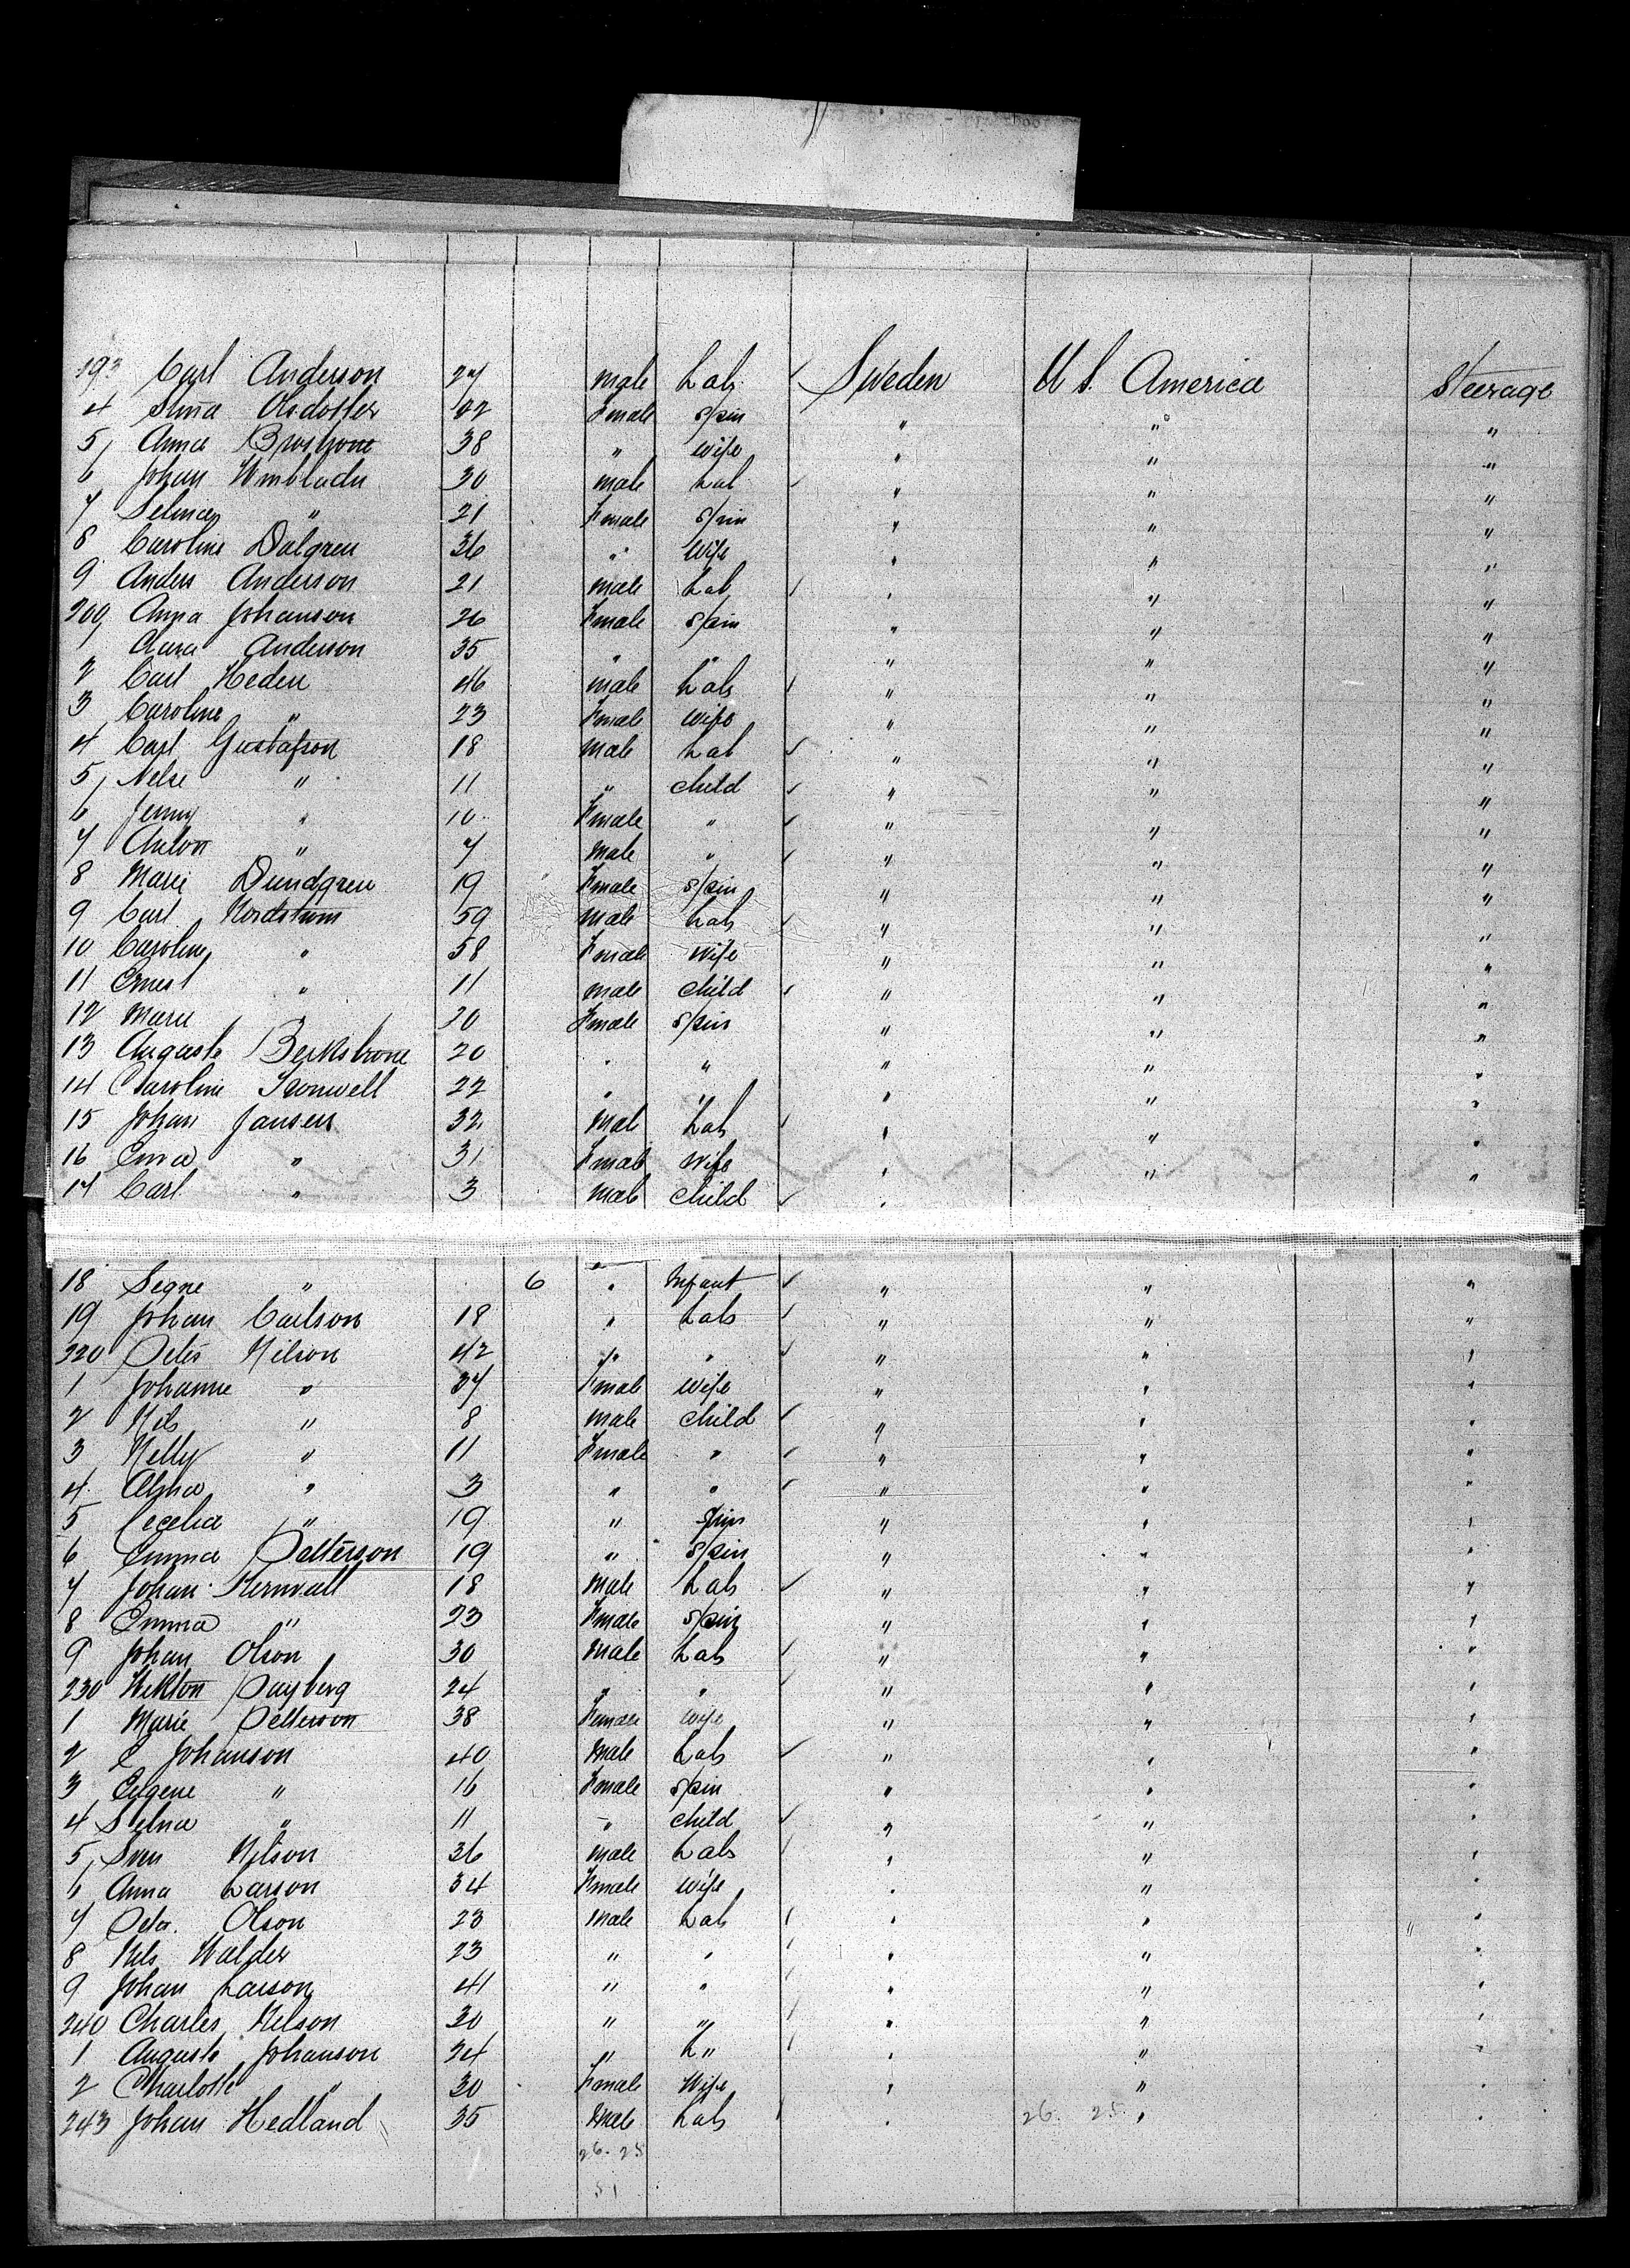 193 Carl Anderson 27 male Lab ✓ Sweden U S. America Steerage
4 Olsdotter Female Spin " " "
5, Anna 38 " wife " " "
6 Johan 30 male Lab ✓ " " "
7 Selma " 21 Female Spin " " "
8 Caroline Dalgren 36 " Wife " " "
9 Anders Anderson 21 male Lab ✓ " " "
200, Anna Johanson 26 Female Spin " " "
1 Clara Anderson 35 " " " " "
2 Carl Heden 46 male Lab ✓ " " "
3 Caroline " 23 Female wife " " "
4 Carl Gustafson 18 male Lab ✓ " " "
5, Nelse " 11 " child ✓ " " "
6 Jenny " 10 Female " ✓ " " "
7 " 7 Male " ✓ " " "
8 Marie 19 Female Spin " " "
9 Carl Nordstrum 59 male Lab ✓ " " "
10 Caroline " 58 Female wife " " "
11 Ernest " 11 male child ✓ " " "
12 Marie " 20 Female Spin " " "
13 Auguste 20 " " " " "
14 Caroline 22 " " " " "
15 Johan Jansen 32 Male Lab ✓ " " "
16 " 31 Female wife " " "
17 Carl " 3 male child ✓ " " "
18 Segne " 6 " Infant ✓ " " "
19 Johan Carlson 18 " Lab ✓ " " "
320 Peter Nilson 42 " " ✓ " " "
1 Johanne " 37 Female wife " " "
2 Nils " 8 male child ✓ " " "
3 Nelly " 11 Female " ✓ " " "
4 " 3 " " ✓ " " "
5 Cecelia " 19 " Spin " " "
6 Emma Petterson 19 " Spin " " "
7 Johan 18 Male Lab ✓ " " "
8 Emma " 23 Female Spin " " "
9 Johan Olson 30 male Lab ✓ " " "
230 24 " " ✓ " " "
1 Marie Petterson 38 Female wife " " "
2 Johanson 40 Male Lab ✓ " " "
3 Eugene " 16 Female Spin " " "
4 " 11 " child ✓ " " "
5, Sven Nilson 36 male Lab ✓ " " "
6 Anna Larson 34 Female wife " " "
7 Peter Olson 23 Male Lab ✓ " " "
8 Nels Walder 23 " " ✓ " " "
9 Johan Larson 41 " " ✓ " " "
240 Charles Nelson 20 " " ✓ " " "
1 Auguste Johanson 34 " L " ✓ " " "
2 Charlotte " 30 Female Wife " " "
243 Johan Hedland 35 Male Lab ✓ " 26. 25. " "
26. 25
51